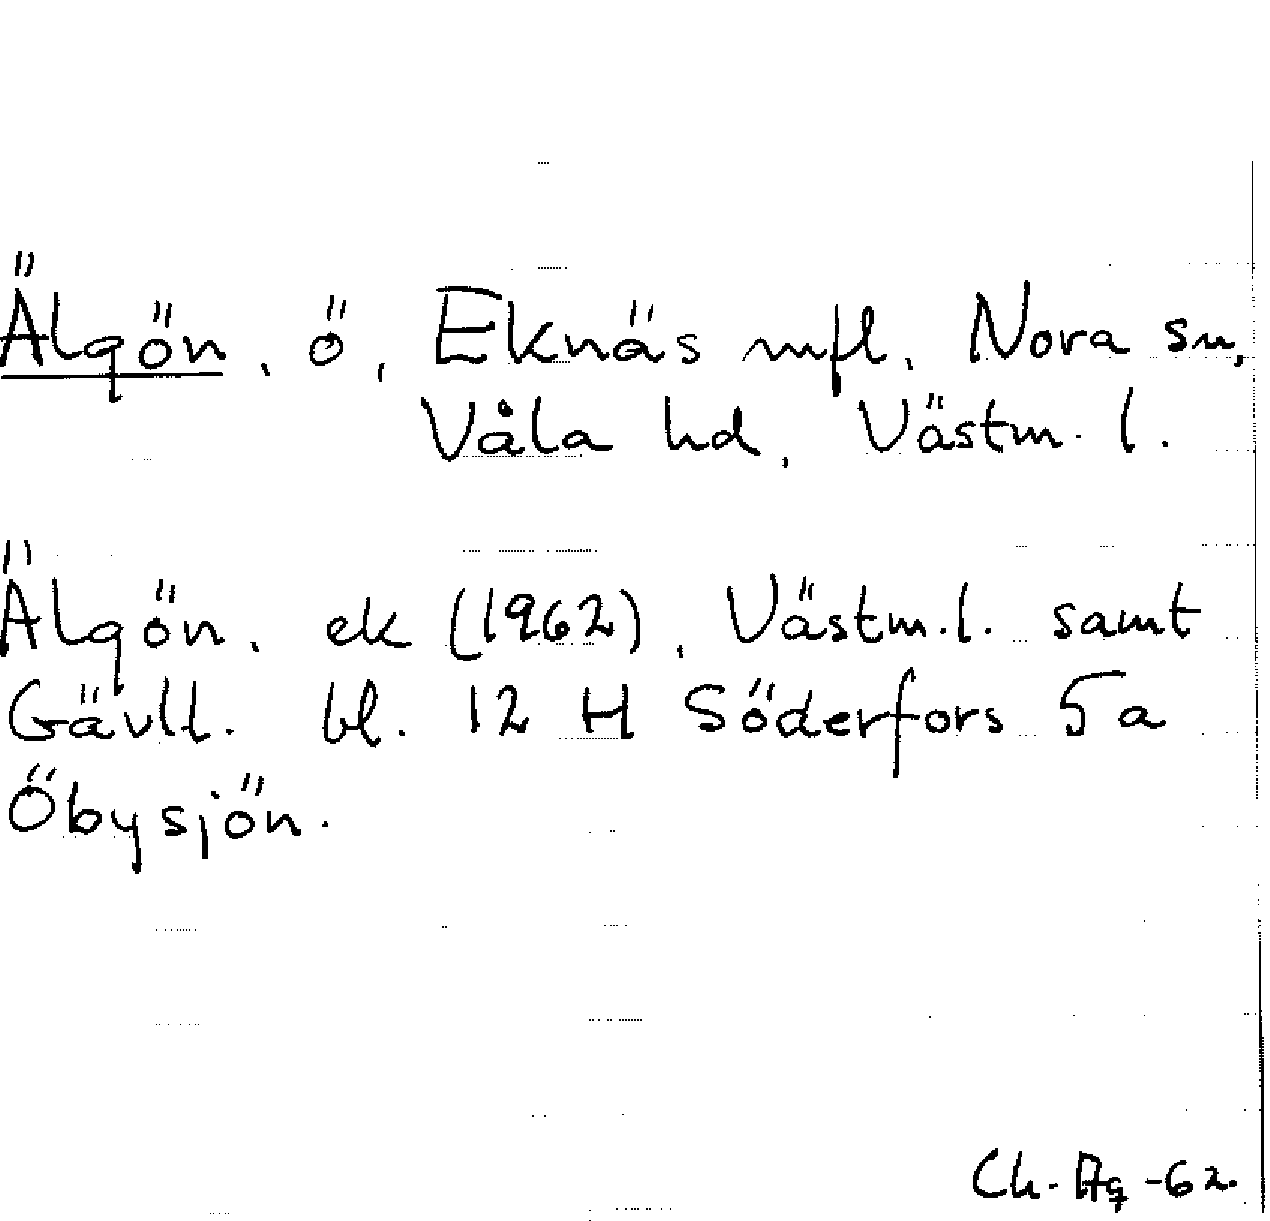 Älgön, ö, Eknäs mfl, Nora sn,
Våla hd, Västm. l.
Älgön. ek (1962), Västm.l. samt
Gävll. bl. 12 H Söderfors 5a
Öbysjön.
Ch. Ag -62.